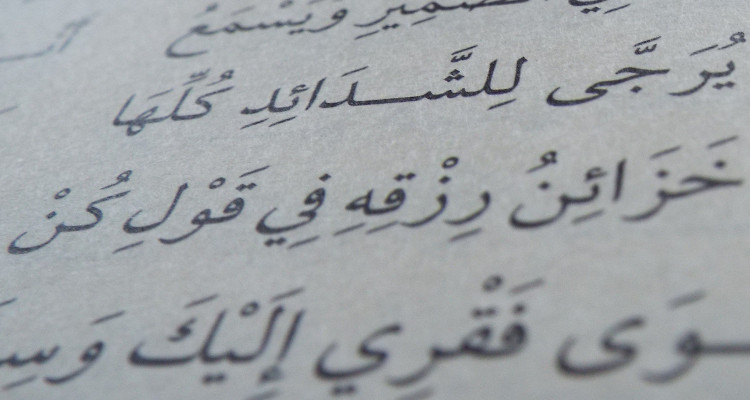 فِي الضَّمِيرِ وَيَسْمَعُ
يُرَجَّى لِلشَّدَائِدِ كُلِّهَا
خَزَائِنُ رِزْقِهِ فِي قَوْلِ كُنْ
ـوَى فَقْرِي إِلَيْكَ وَسِـ